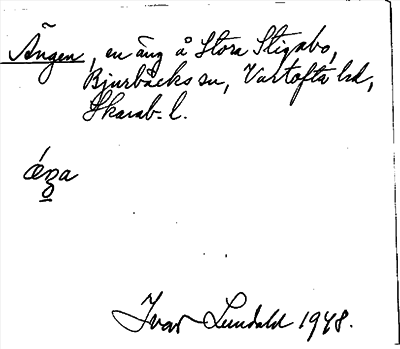 Ängen, en äng å Stora Stigabo,
Bjurbäcks sn, Vartofta hd,
Skarab. l.
Ivar Lundahl 1948.